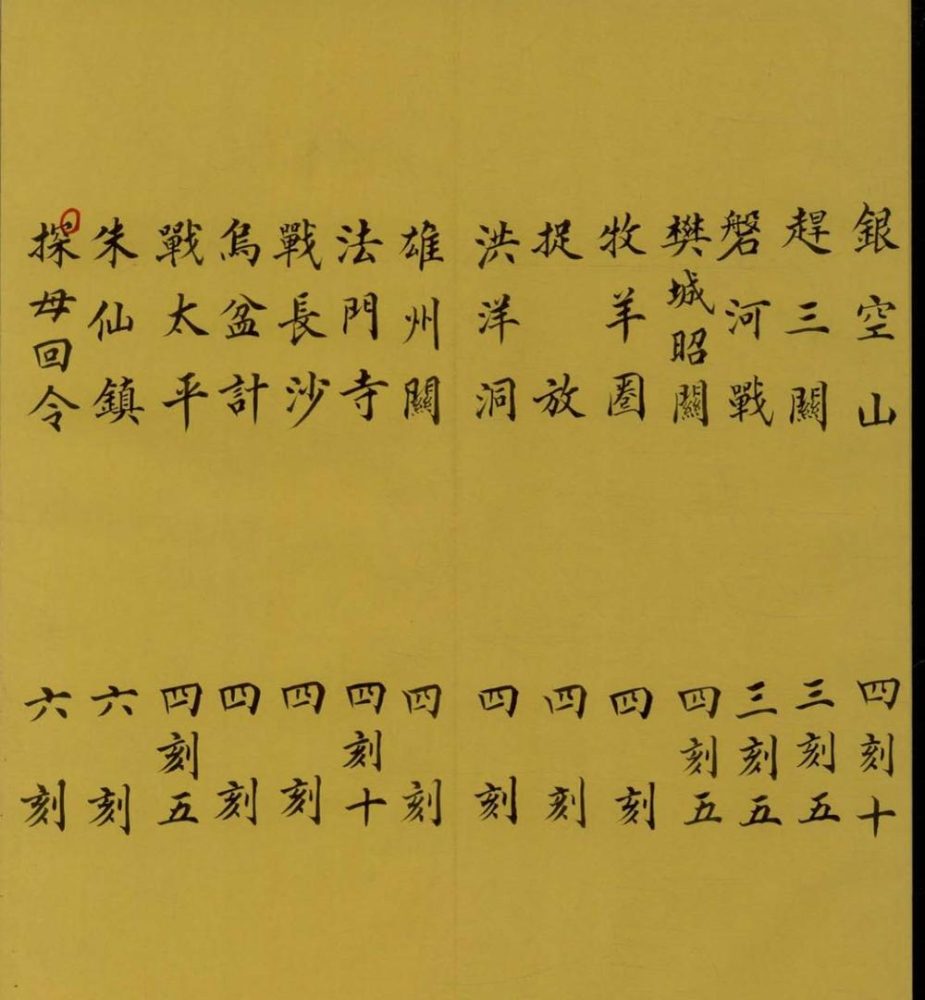 銀空山 四刻十
趕三關 三刻五
磐河戰 三刻五
樊城昭關 四刻五
牧羊圈 四刻
捉放 四刻
洪洋洞 四刻
雄州關 四刻
法門寺 四刻十
戰長沙 四刻
烏盆計 四刻
戰太平 四刻五
朱仙鎮 六刻
探母回令 六刻